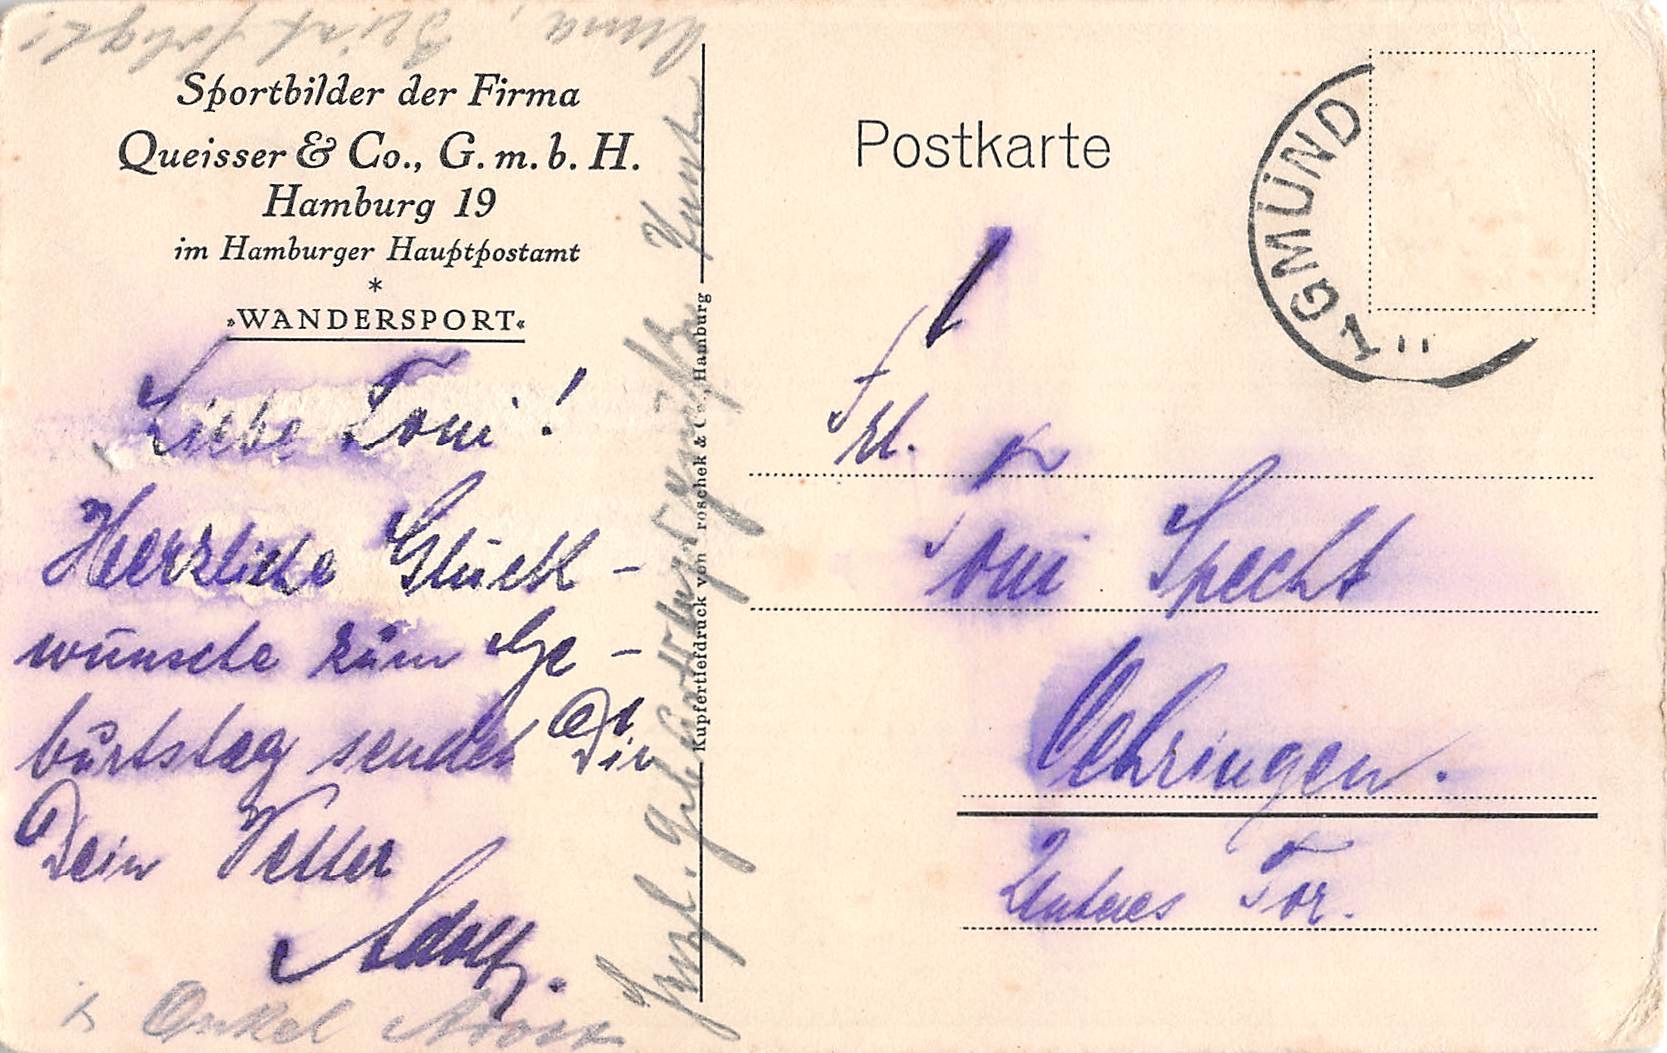 Sportbilder der Firma
Queisser & Co., G.m.b.H.
Hamburg 19
im Hamburger Hauptpostamt
*
»WANDERSPORT«
Liebe Toni!
Herzliche Glück-
wünsche zum Ge-
burtstag sendet Dir
Dein Vetter
Adolf.
Onkel
Herzl. Geburtstagsgrüße
Kupfertiefdruck von roschek & Co., Hamburg
Postkarte
GMÜND
1
Frl.
Toni Specht
Oehringen.
Unteres Tor.